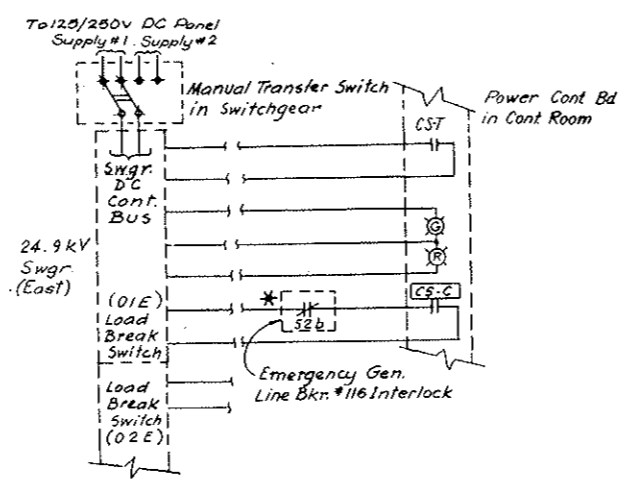 To 125/250V DC Panel
Supply #1. Supply #2
Manual Transfer Switch
in Switchgear
Power Cont Bd
in Cont. Room
CS-T
Swgr.
DC
Cont.
Bus
G
24.9 kV
Swgr.
(East)
R
(01E)
Load
Break
Switch
*
52b
CS-C
Emergency Gen.
Line Bkr. #116 Interlock
Load
Break
Switch
(02E)